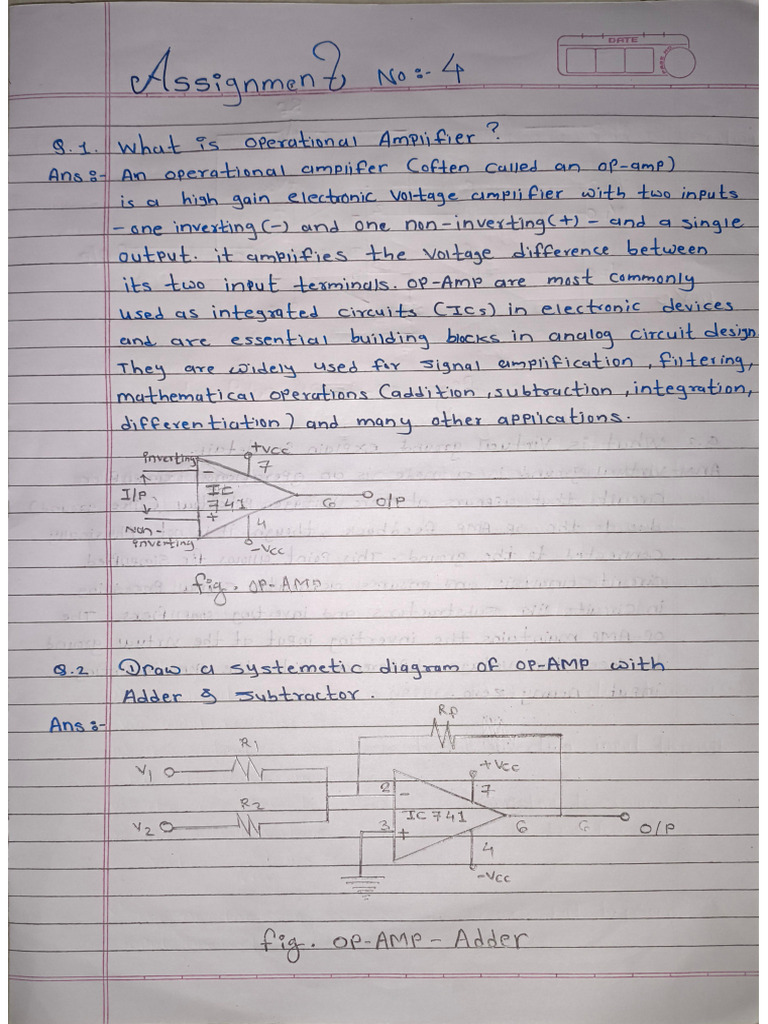 DATE
Assignment No:- 4
Q.1. What is operational Amplifier?
Ans:- An operational amplifer (often called an op-amp)
is a high gain electronic voltage amplifier with two inputs
- one inverting (-) and one non-inverting (+) - and a single
output. it amplifies the voltage difference between
its two input terminals. OP-AMP are most commonly
used as integrated circuits (ICs) in electronic devices
and are essential building blocks in analog circuit design
They are widely used for signal amplification, filtering,
mathematical operations (addition, subtraction, integration,
differentiation) and many other applications.
inverting
+Vcc
7
-
I/P
IC
741
6
O/P
+
4
Non-
inverting
-Vcc
fig. OP-AMP
Q.2 Draw a systemetic diagram of OP-AMP with
Adder & Subtractor.
Ans:-
RF
R1
V1
+Vcc
2
-
7
R2
IC 741
V2
3
+
6
6
O/P
4
-Vcc
fig. OP-AMP - Adder